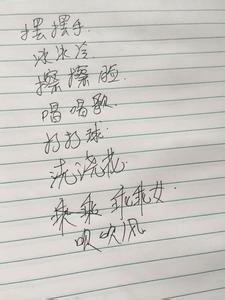 摆摆手
冰冰冷
擦擦脸
唱唱歌
打打球
浇浇花
乖乖乖乖女
吹吹风